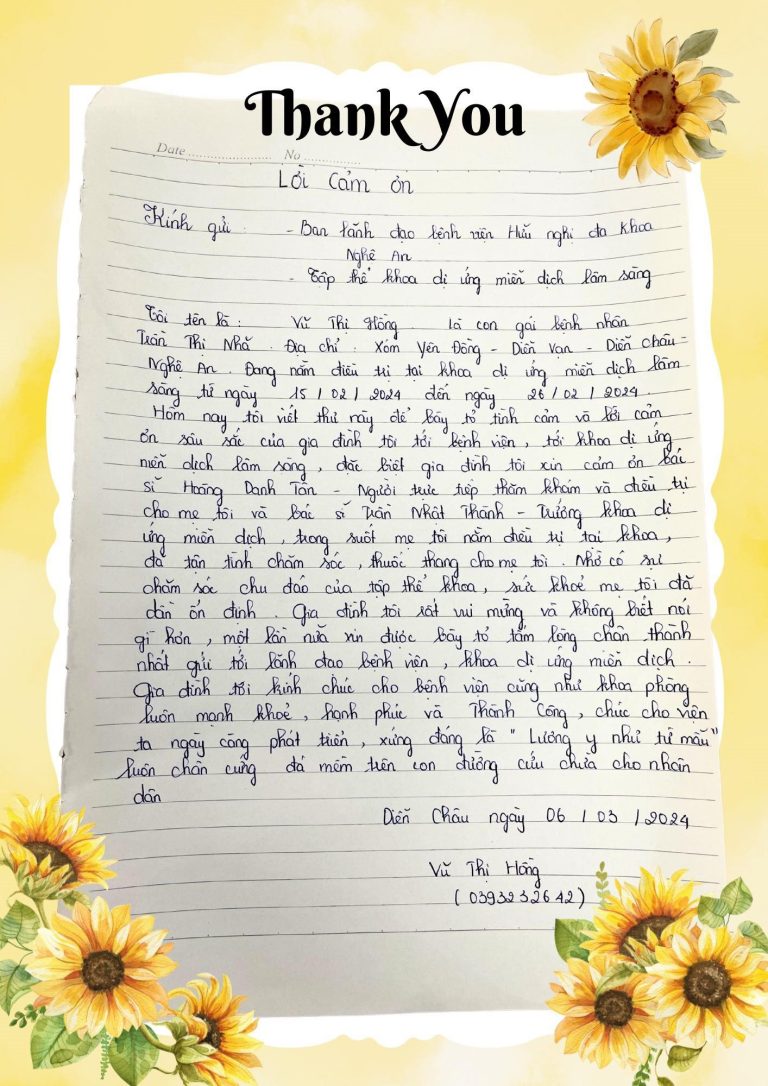 Thank You
Date .......................... No .................
Lời cảm ơn
Kính gửi : - Ban lãnh đạo bệnh viện Hữu nghị đa khoa
Nghệ An
- Tập thể khoa dị ứng miễn dịch lâm sàng
Tôi tên là : Vũ Thị Hồng . là con gái bệnh nhân
Trần Thị Nhã . Địa chỉ : Xóm Yên Đồng - Diễn Vạn - Diễn Châu -
Nghệ An . Đang nằm điều trị tại khoa dị ứng miễn dịch lâm
sàng từ ngày 15 / 02 / 2024 đến ngày 26 / 02 / 2024 .
Hôm nay tôi viết thư này để bày tỏ tình cảm và lời cảm
ơn sâu sắc của gia đình tôi tới bệnh viện , tới khoa dị ứng
miễn dịch lâm sàng , đặc biệt gia đình tôi xin cảm ơn bác
sĩ Hoàng Danh Tân - Người trực tiếp thăm khám và điều trị
cho mẹ tôi và bác sĩ Trần Nhật Thành - Trưởng khoa dị
ứng miễn dịch , trong suốt mẹ tôi nằm điều trị tại khoa ,
đã tận tình chăm sóc , thuốc thang cho mẹ tôi . Nhờ có sự
chăm sóc chu đáo của tập thể khoa , sức khoẻ mẹ tôi đã
dần ổn định . Gia đình tôi rất vui mừng và không biết nói
gì hơn , một lần nữa xin được bày tỏ tấm lòng chân thành
nhất gửi tới lãnh đạo bệnh viện , khoa dị ứng miễn dịch .
Gia đình tôi kính chúc cho bệnh viện cũng như khoa phòng
luôn mạnh khoẻ , hạnh phúc và Thành Công , chúc cho viện
ta ngày càng phát triển , xứng đáng là " Lương y như từ mẫu "
luôn chân cứng đá mềm trên con đường cứu chữa cho nhân
dân
Diễn Châu ngày 06 / 03 / 2024
Vũ Thị Hồng
( 0393232642 )